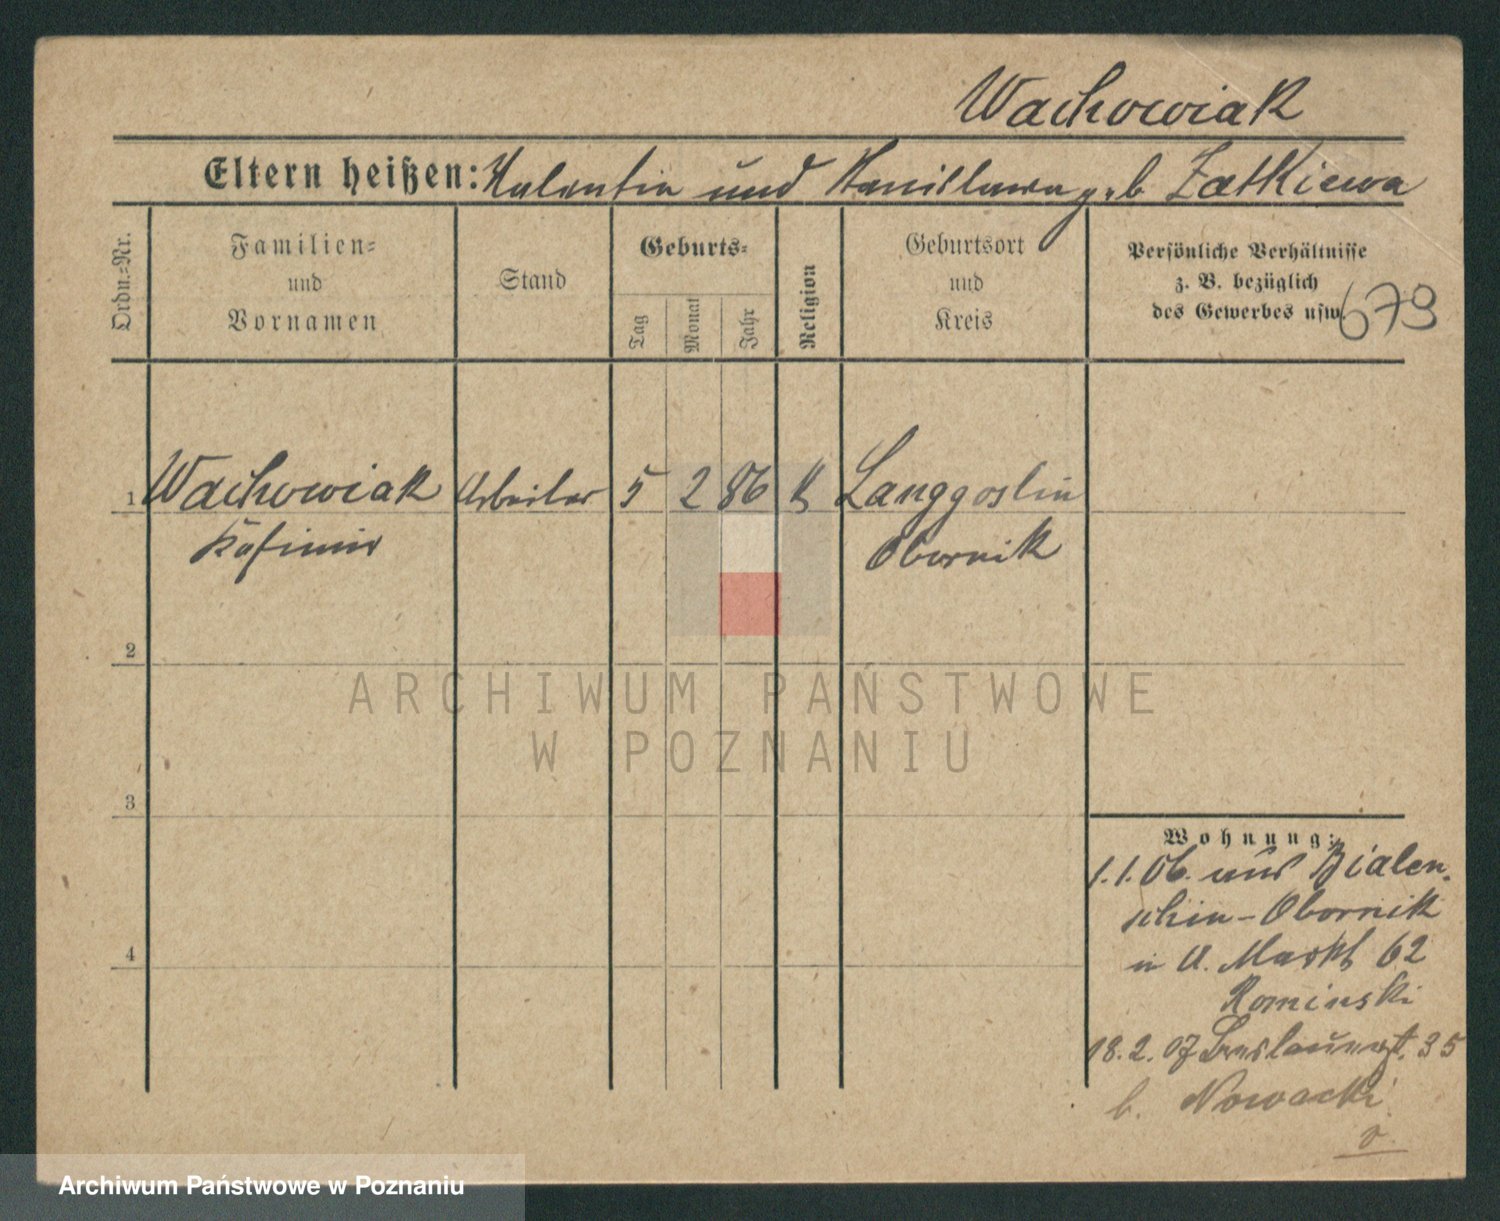 Wachowiak
Eltern heißen: Valentin und Stanislawa geb Zatkiewa
Ordn.-Nr.
Familien- und Vornamen
Stand
Geburts-
Tag
Monat
Jahr
Religion
Geburtsort und Kreis
Persönliche Verhältnisse
z. B. bezüglich
des Gewerbes usw.
679
1 Wachowiak Arbeiter 5 2 86 K Langgoslin
Kasimir Obornik
2
3
4
ARCHIWUM PAŃSTWOWE
W POZNANIU
Wohnung:
1.1.06. aus Bialen-
schin - Obornik
n A. Markt 62
Rominski
18.2.07 Breslauerst. 35
b. Nowacki
v.
Archiwum Państwowe w Poznaniu